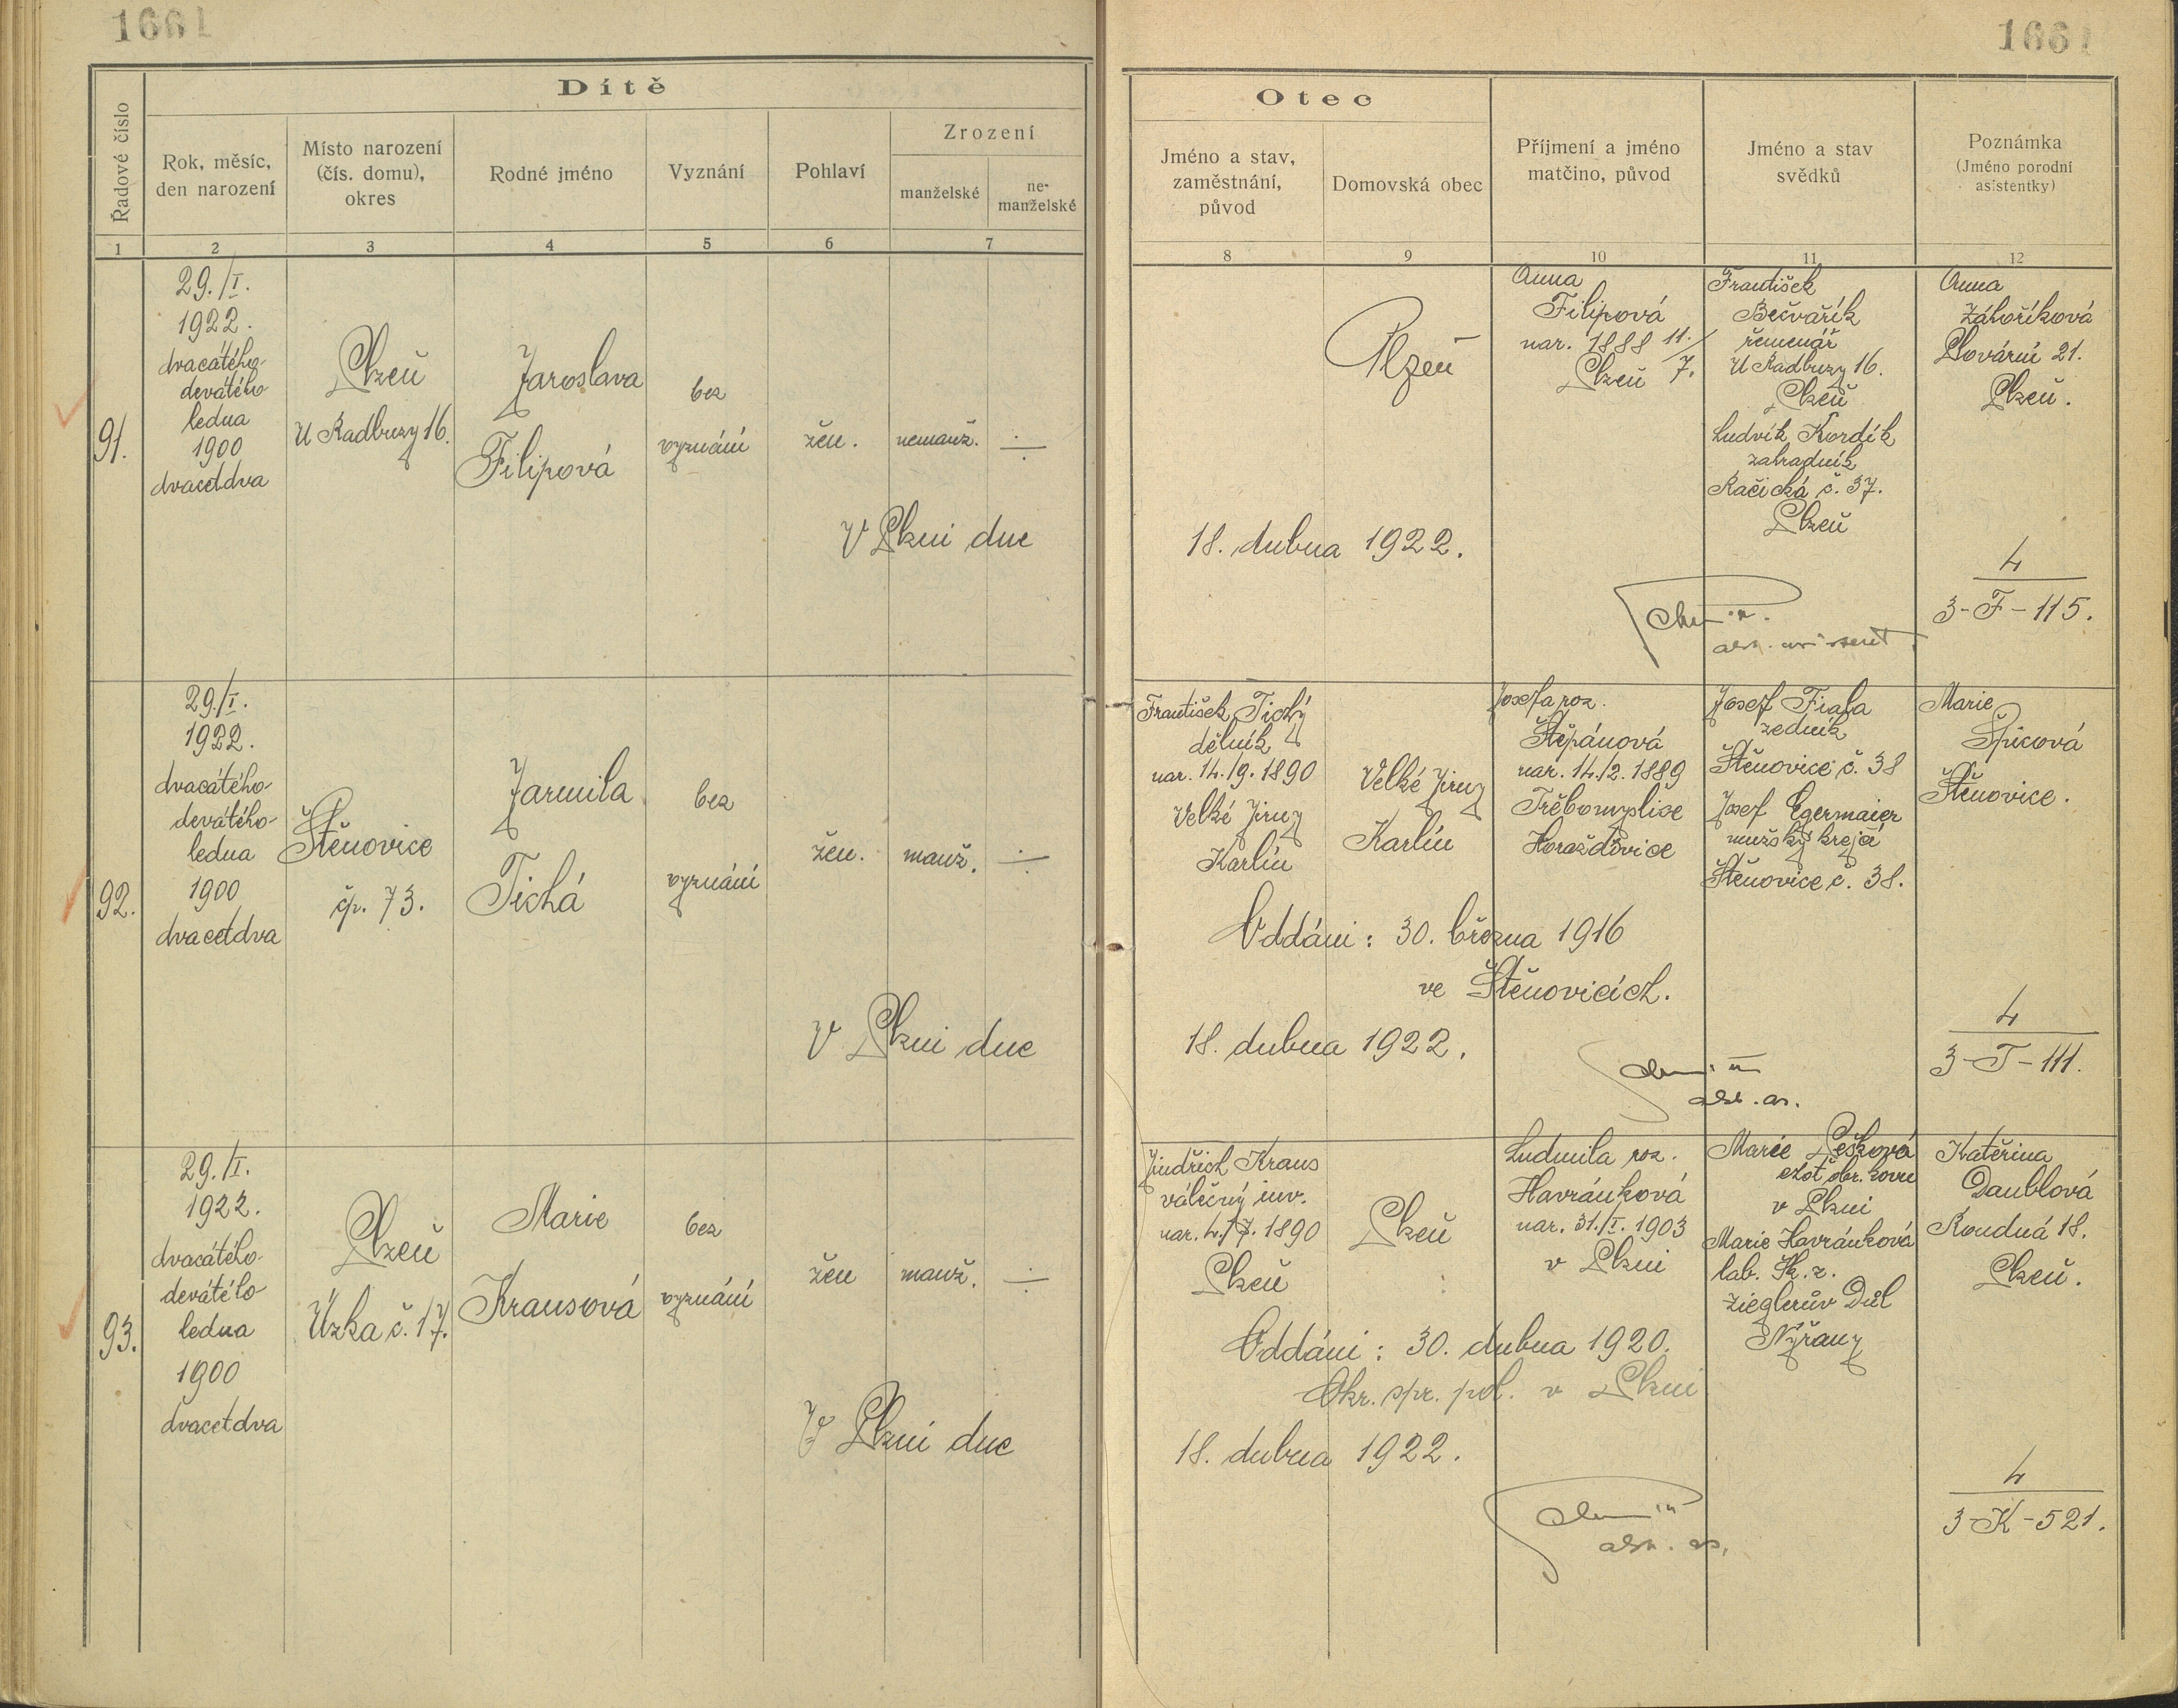 1661
1661
Dítě
Řadové číslo
Rok, měsíc,
den narození
Místo narození
(čís. domu),
okres
Rodné jméno
Vyznání
Pohlaví
Zrození
manželské
ne-
manželské
1 2 3 4 5 6 7
Otec
Jméno a stav,
zaměstnání,
původ
Domovská obec
Příjmení a jméno
matčino, původ
Jméno a stav
svědků
Poznámka
(Jméno porodní
asistentky)
8 9 10 11 12
91.
29./I.
1922.
dvacátého
devátého
ledna
1900
dvacetdva
Plzeň
U Radbuzy 16.
Jaroslava
Filipová
bez
vyznání
žen.
nemanž.
V Plzni dne
Plzeň
Anna
Filipová
nar. 1888 11./7.
Plzeň
František
Bečvařík
řemenář
U Radbuzy 16.
Plzeň
Ludvík Kordík
zahradník
Račická č. 37.
Plzeň
Anna
Záhoříková
Plovární 21.
Plzeň.
18. dubna 1922.
4
3-F-115.
92.
29./I.
1922.
dvacátého-
devátého-
ledna
1900
dvacetdva
Štěnovice
čp. 73.
Jarmila
Tichá
bez
vyznání
žen.
manž.
V Plzni dne
František Tichý
dělník
nar. 14./9. 1890
Velké Jirny
Karlín
Velké Jirny
Karlín
Josefa roz.
Štěpánová
nar. 14./2. 1889
Třebomyslice
Horažďovice
Josef Fiala
zedník
Štěnovice č. 38
Josef Egermaier
mužský krejčí
Štěnovice č. 38.
Marie
Špicová
Štěnovice.
Oddáni: 30. března 1916
ve Štěnovicích.
18. dubna 1922.
4
3-T-111.
93.
29./I.
1922.
dvacátého-
devátého
ledna
1900
dvacetdva
Plzeň
Úzká č. 17.
Marie
Krausová
bez
vyznání
žen
manž.
V Plzni dne
Jindřich Kraus
válečný inv.
nar. 4./7. 1890
Plzeň
Plzeň
Ludmila roz.
Havránková
nar. 31./I. 1903
v Plzni
Marie Pešková
chot obr. kovu
v Plzni
Marie Havránková
lab. Šk. z.
Zieglerův Důl
Nýřany
Kateřina
Daublová
Roudná 18.
Plzeň.
Oddáni: 30. dubna 1920.
Okr. spr. pol. v Plzni
18. dubna 1922.
4
3-K-521.